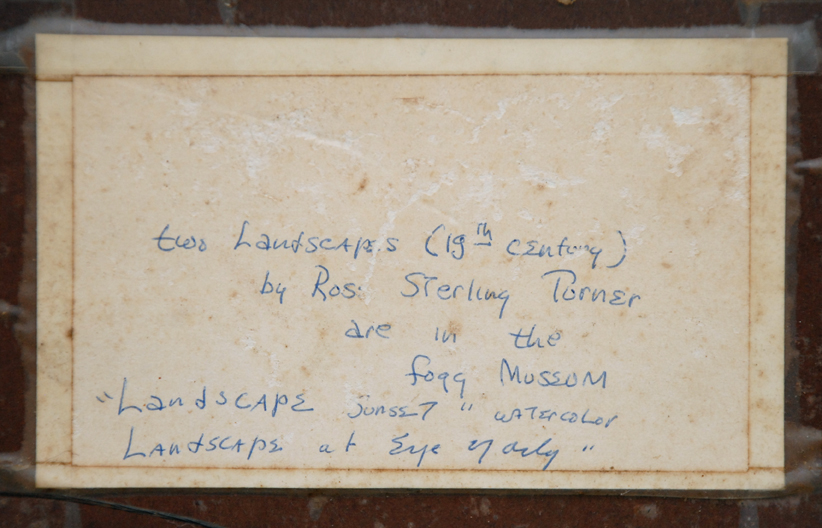 two Landscapes (19th century)
by Ross Sterling Turner
are in the
fogg Museum
"Landscape Sunset" watercolor
Landscape at Eye "